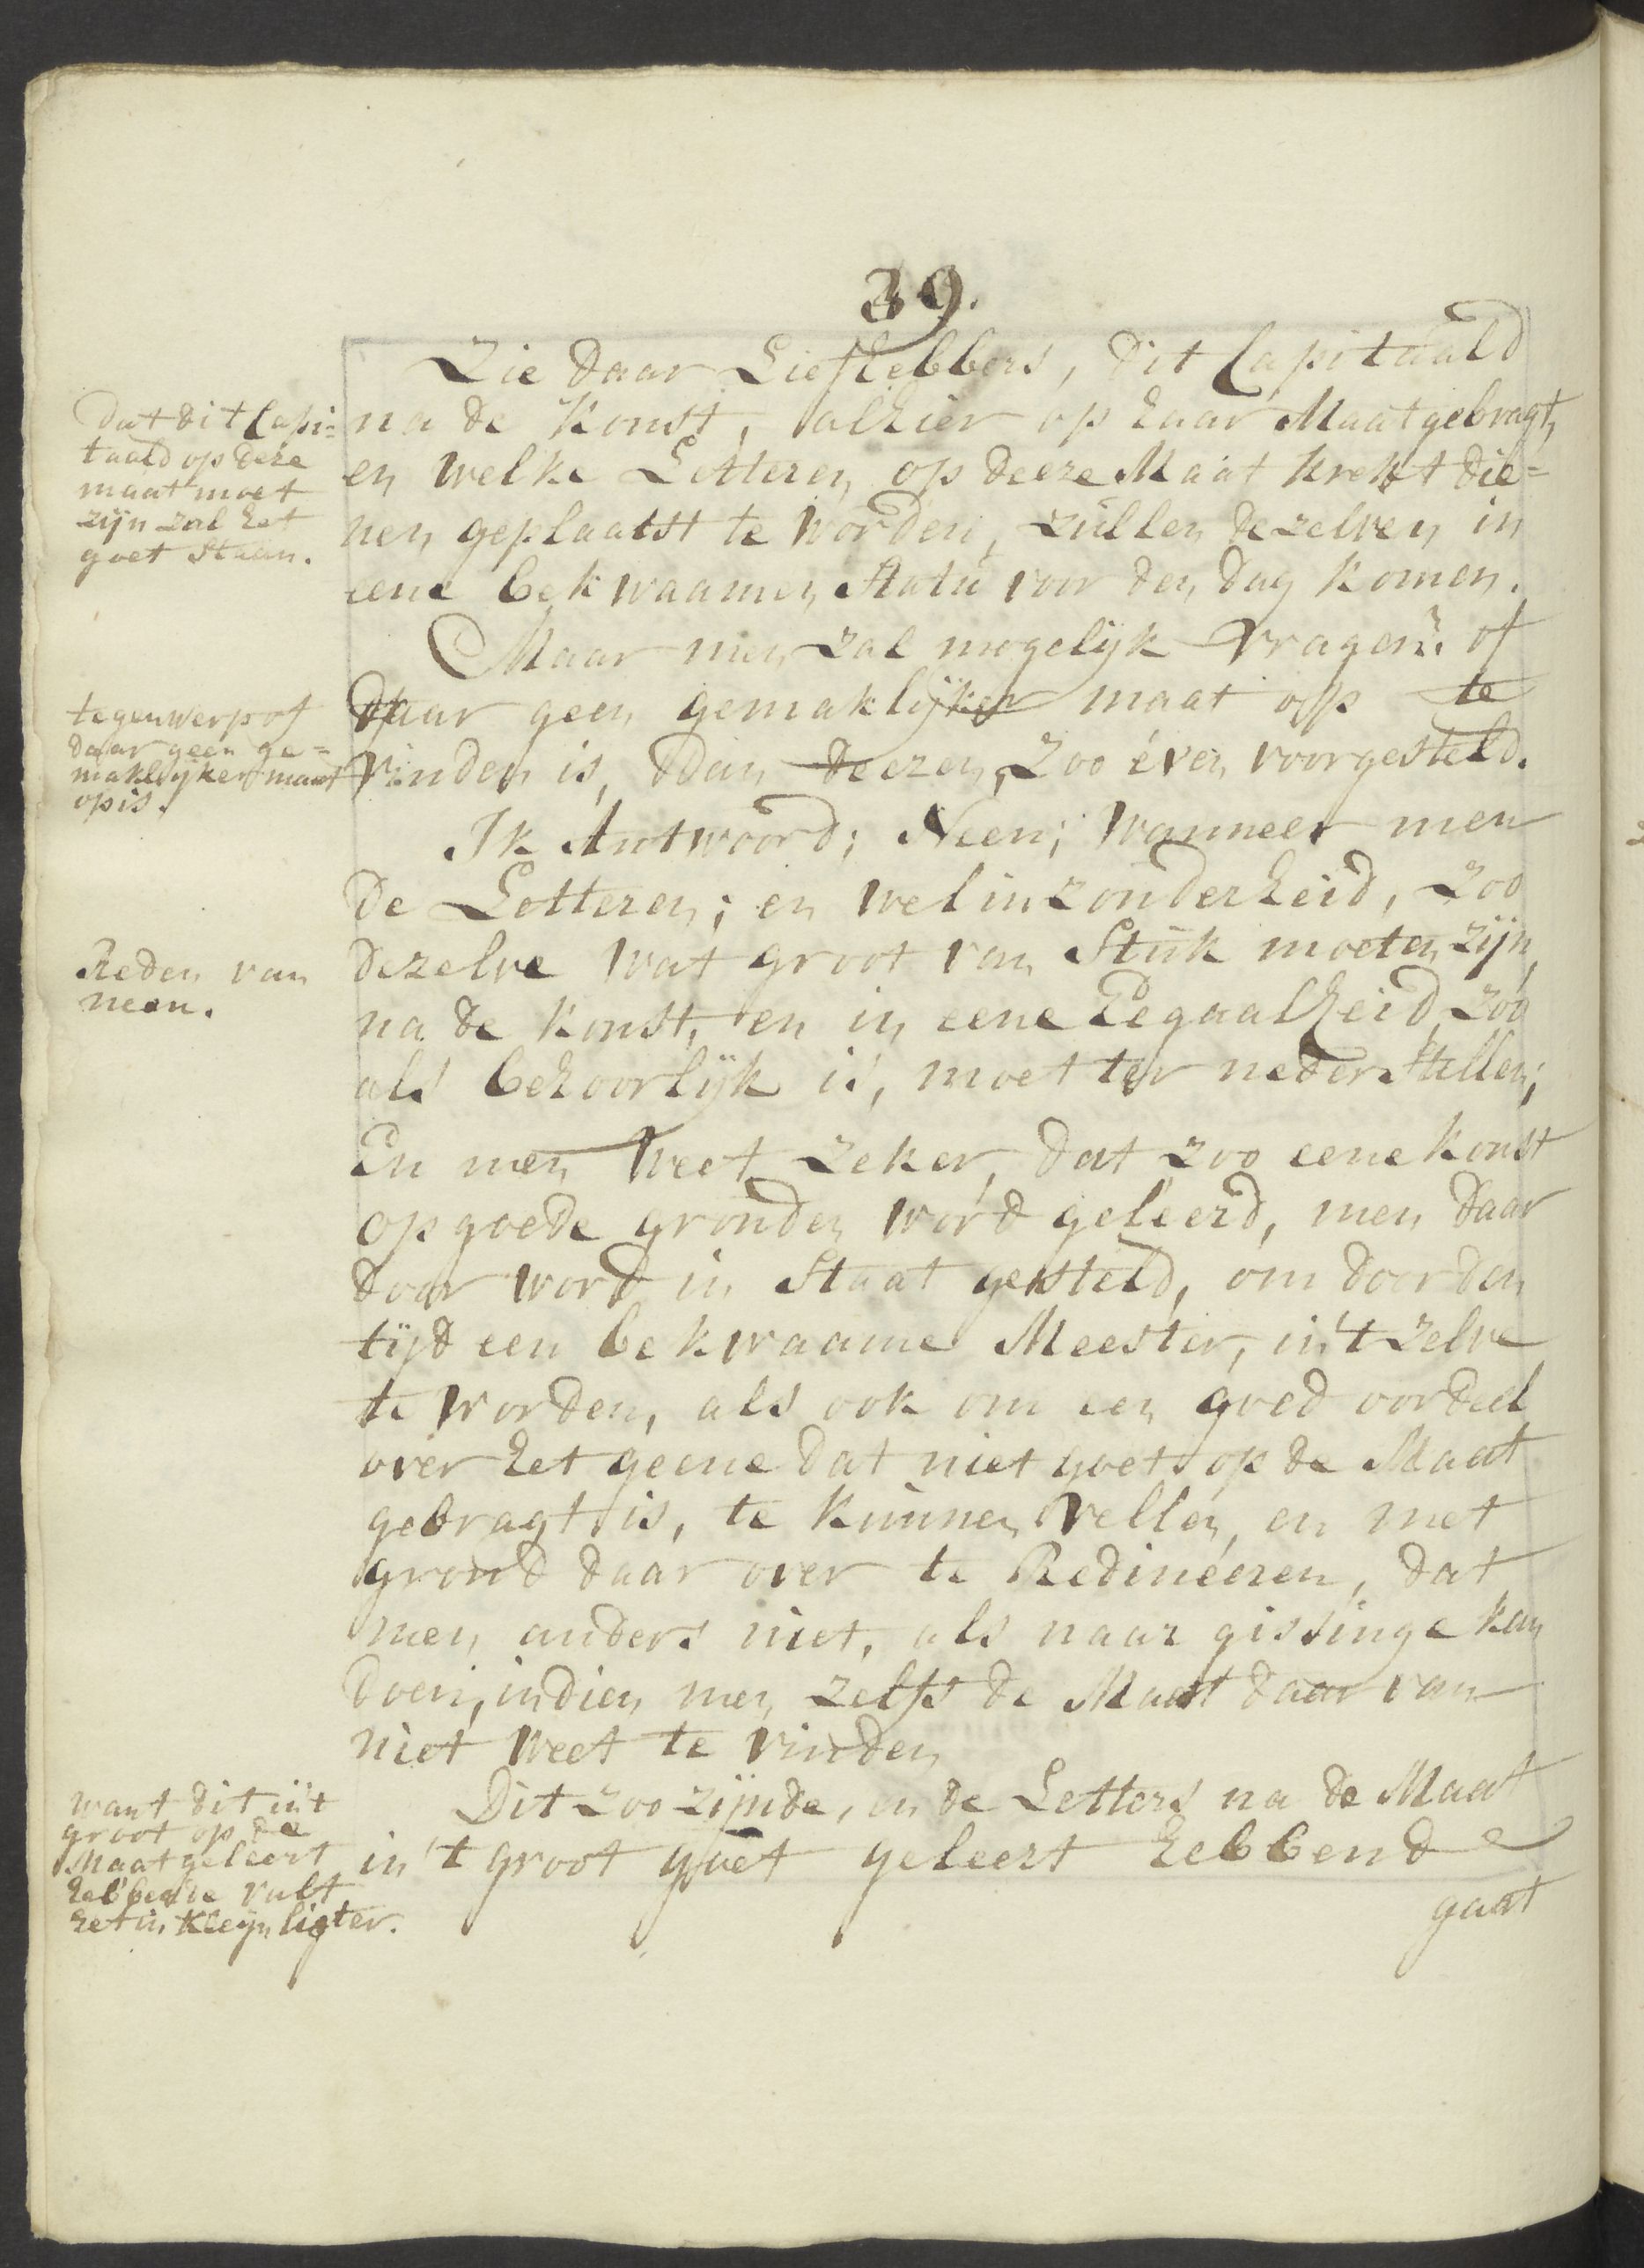 39.
Zie daar Liefhebbers, dit Capitaald
na de Konst, alhier op haar Maat gebragt,
en welke Letteren op deeze Maat krekt die=
nen geplaatst te worden, zullen dezelven in
eene bekwaamen Statu voor den dag komen.
Maar men zal mogelijk vragen? of
daar geen gemaklijker maat op te
vinden is, dan deezen, zoo éven voorgesteld.
Ik Antwoord; Neen; wanneer men
de Letteren; en wel inzonderheid, zoo
dezelve wat groot van Stuk moeten zijn,
na de Konst, en in eene Eegaalheid, zoo
als behoorlijk is, moet ter neder Stellen;
En men weet zeker, dat zoo eene konst
op goede gronden word geleerd, men daar
door word in Staat gesteld, om door den
tijd een bekwaame Meester, in't zelve
te worden, als ook om een goed oordeel
over het geene dat niet goet op de Maat
gebragt is, te kunnen vellen, en met
grond daar over te Redineeren, dat
men anders niet, als naar gissinge kan
doen, indien men zelfs de Maat daar van
niet weet te vinden
Dit zoo zijnde, en de Letters na de Maat
in't groot goet geleert hebbende
gaat
Dat dit Capi=
taald op deze
maat moet
zijn zal het
goet Staan.
tegenwerp of
daar geen ge=
maklijker maat
op is.
Reden van
neen.
want dit in't
groot op de
Maat geleert
hebbende valt
het in kleijn ligter.